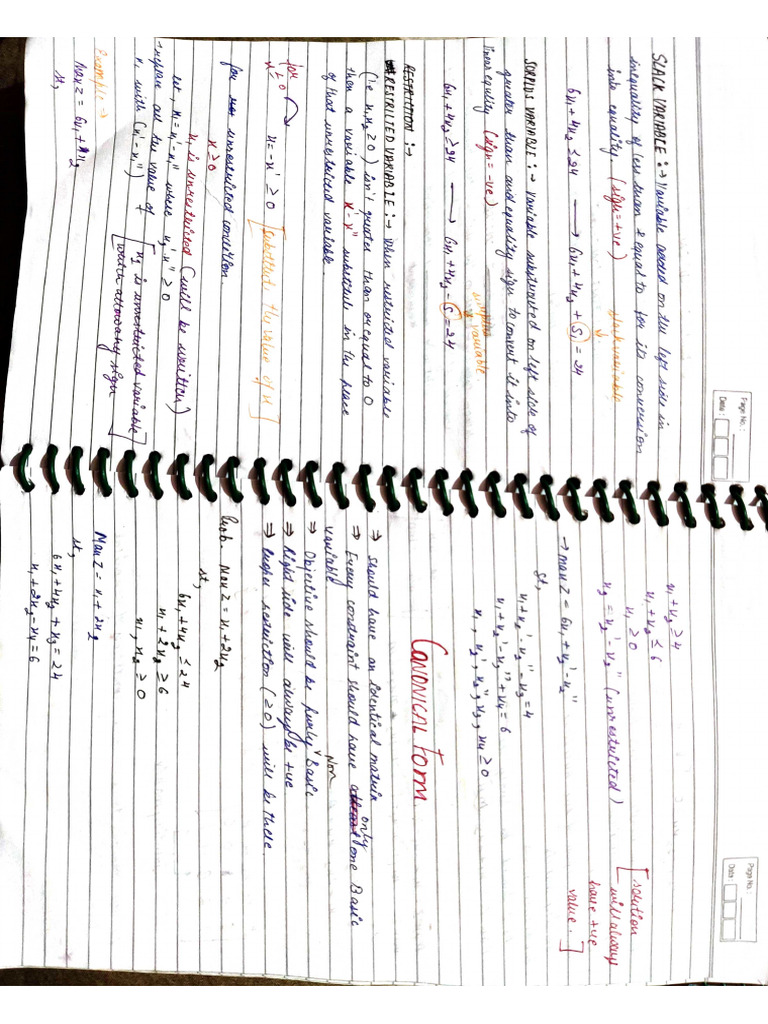 Page No. :
Date :
SLACK VARIABLE :→ Variable added on the left side in
inequality of less than & equal to for its conversion
into equality. (sign = +ve)
slack variable
6x₁ + 4x₂ ≤ 24 → 6x₁ + 4x₂ + S = 24
SURPLUS VARIABLE :→ Variable substracted on left side of
greater than and equality sign to convert it into
linear equality (sign = -ve)
6x₁ + 4x₂ ≥ 24 → 6x₁ + 4x₂ - S = 24
variable
RESTRICTION :→
RESTRICTED VARIABLE :→ When restricted variable
(ie x₁, x₂ ≥ 0) isn't greater than or equal to 0
then a variable x' - x'' substitute in the place
of that unrestricted variable
for x ≤ 0
x = -x' ≥ 0 [substitute the value of x]
for unrestricted condition.
x ≥ 0
x₁ is unrestricted (will be written)
let, x₁ = x₁' - x₁'' where x₁', x₁'' ≥ 0
→ replace all the value of
x₁ with (x' - x'') +
[x₂ is unrestricted variable
which attord any sign]
Example →
Max Z = 6x₁ + x₂
st,
Page No. :
Date :
x₁ + x₂ ≥ 4
x₁ + x₂ ≤ 6
x₁ ≥ 0
x₂ = x₂' - x₂'' (unrestricted)
[solution
will always
have +ve
value.]
→ max Z = 6x₁ + x₂' - x₂''
st,
x₁ + x₂' - x₂'' - x₃ = 4
x₁ + x₂' - x₂'' + x₄ = 6
x₁, x₂', x₂'', x₃, x₄ ≥ 0
CANONICAL FORM
⇒ should have an identical matrix
⇒ Every constraint should have only one Basic
variable
⇒ Objective should be purly Non Basic
⇒ Right side will always be +ve
⇒ Proper restriction (≥0) will be there.
Prob. Max Z = x₁ + 2x₂
st,
6x₁ + 4x₂ ≤ 24
x₁ + 2x₂ ≥ 6
x₁, x₂ ≥ 0
Max Z = x₁ + 2x₂
st,
6x₁ + 4x₂ + x₃ = 24
x₁ + 2x₂ - x₄ = 6